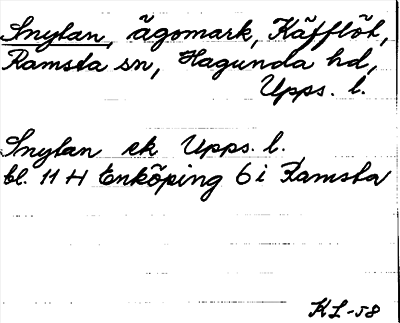 Snylan, ägomark, Käfflöt,
Ramsta sn, Hagunda hd,
Upps. l.
Snylan ek Upps. l.
bl. 11 H Enköping 6 i Ramsta
KL-58